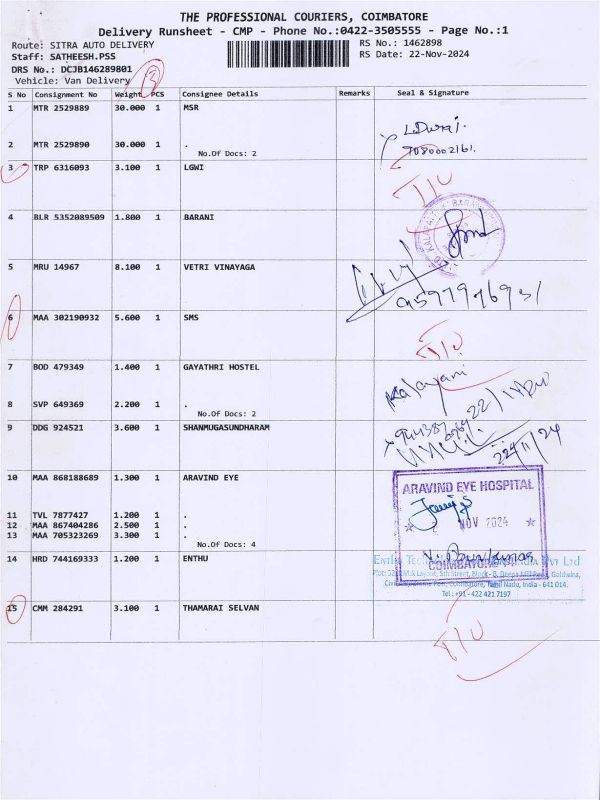 THE PROFESSIONAL COURIERS, COIMBATORE
Delivery Runsheet - CMP - Phone No.:0422-3505555 - Page No.:1
Route: SITRA AUTO DELIVERY
RS No.: 1462898
Staff: SATHEESH.PSS
RS Date: 22-Nov-2024
DRS No.: DCJB146289801
Vehicle: Van Delivery
3
S No Consignment No Weight PCS Consignee Details Remarks Seal & Signature
1 MTR 2529889 30.000 1 MSR
2 MTR 2529890 30.000 1 .
No.Of Docs: 2
7080002161.
3 TRP 6316093 3.100 1 LGWI
4 BLR 5352089509 1.800 1 BARANI
5 MRU 14967 8.100 1 VETRI VINAYAGA
6 MAA 302190932 5.600 1 SMS
7 BOD 479349 1.400 1 GAYATHRI HOSTEL
Kalayani
8 SVP 649369 2.200 1 .
No.Of Docs: 2
9 DDG 924521 3.600 1 SHANMUGASUNDHARAM
22/11/24
10 MAA 868188689 1.300 1 ARAVIND EYE
ARAVIND EYE HOSPITAL
11 TVL 7877427 1.200 1 .
12 MAA 867404286 2.500 1 .
NOV 2024
13 MAA 705323269 3.300 1 .
No.Of Docs: 4
14 HRD 744169333 1.200 1 ENTHU
COIMBATORE
Pvt Ltd
Tamil Nadu, India - 641 014.
Tel.: +91 - 422 421 7197
15 CMM 284291 3.100 1 THAMARAI SELVAN